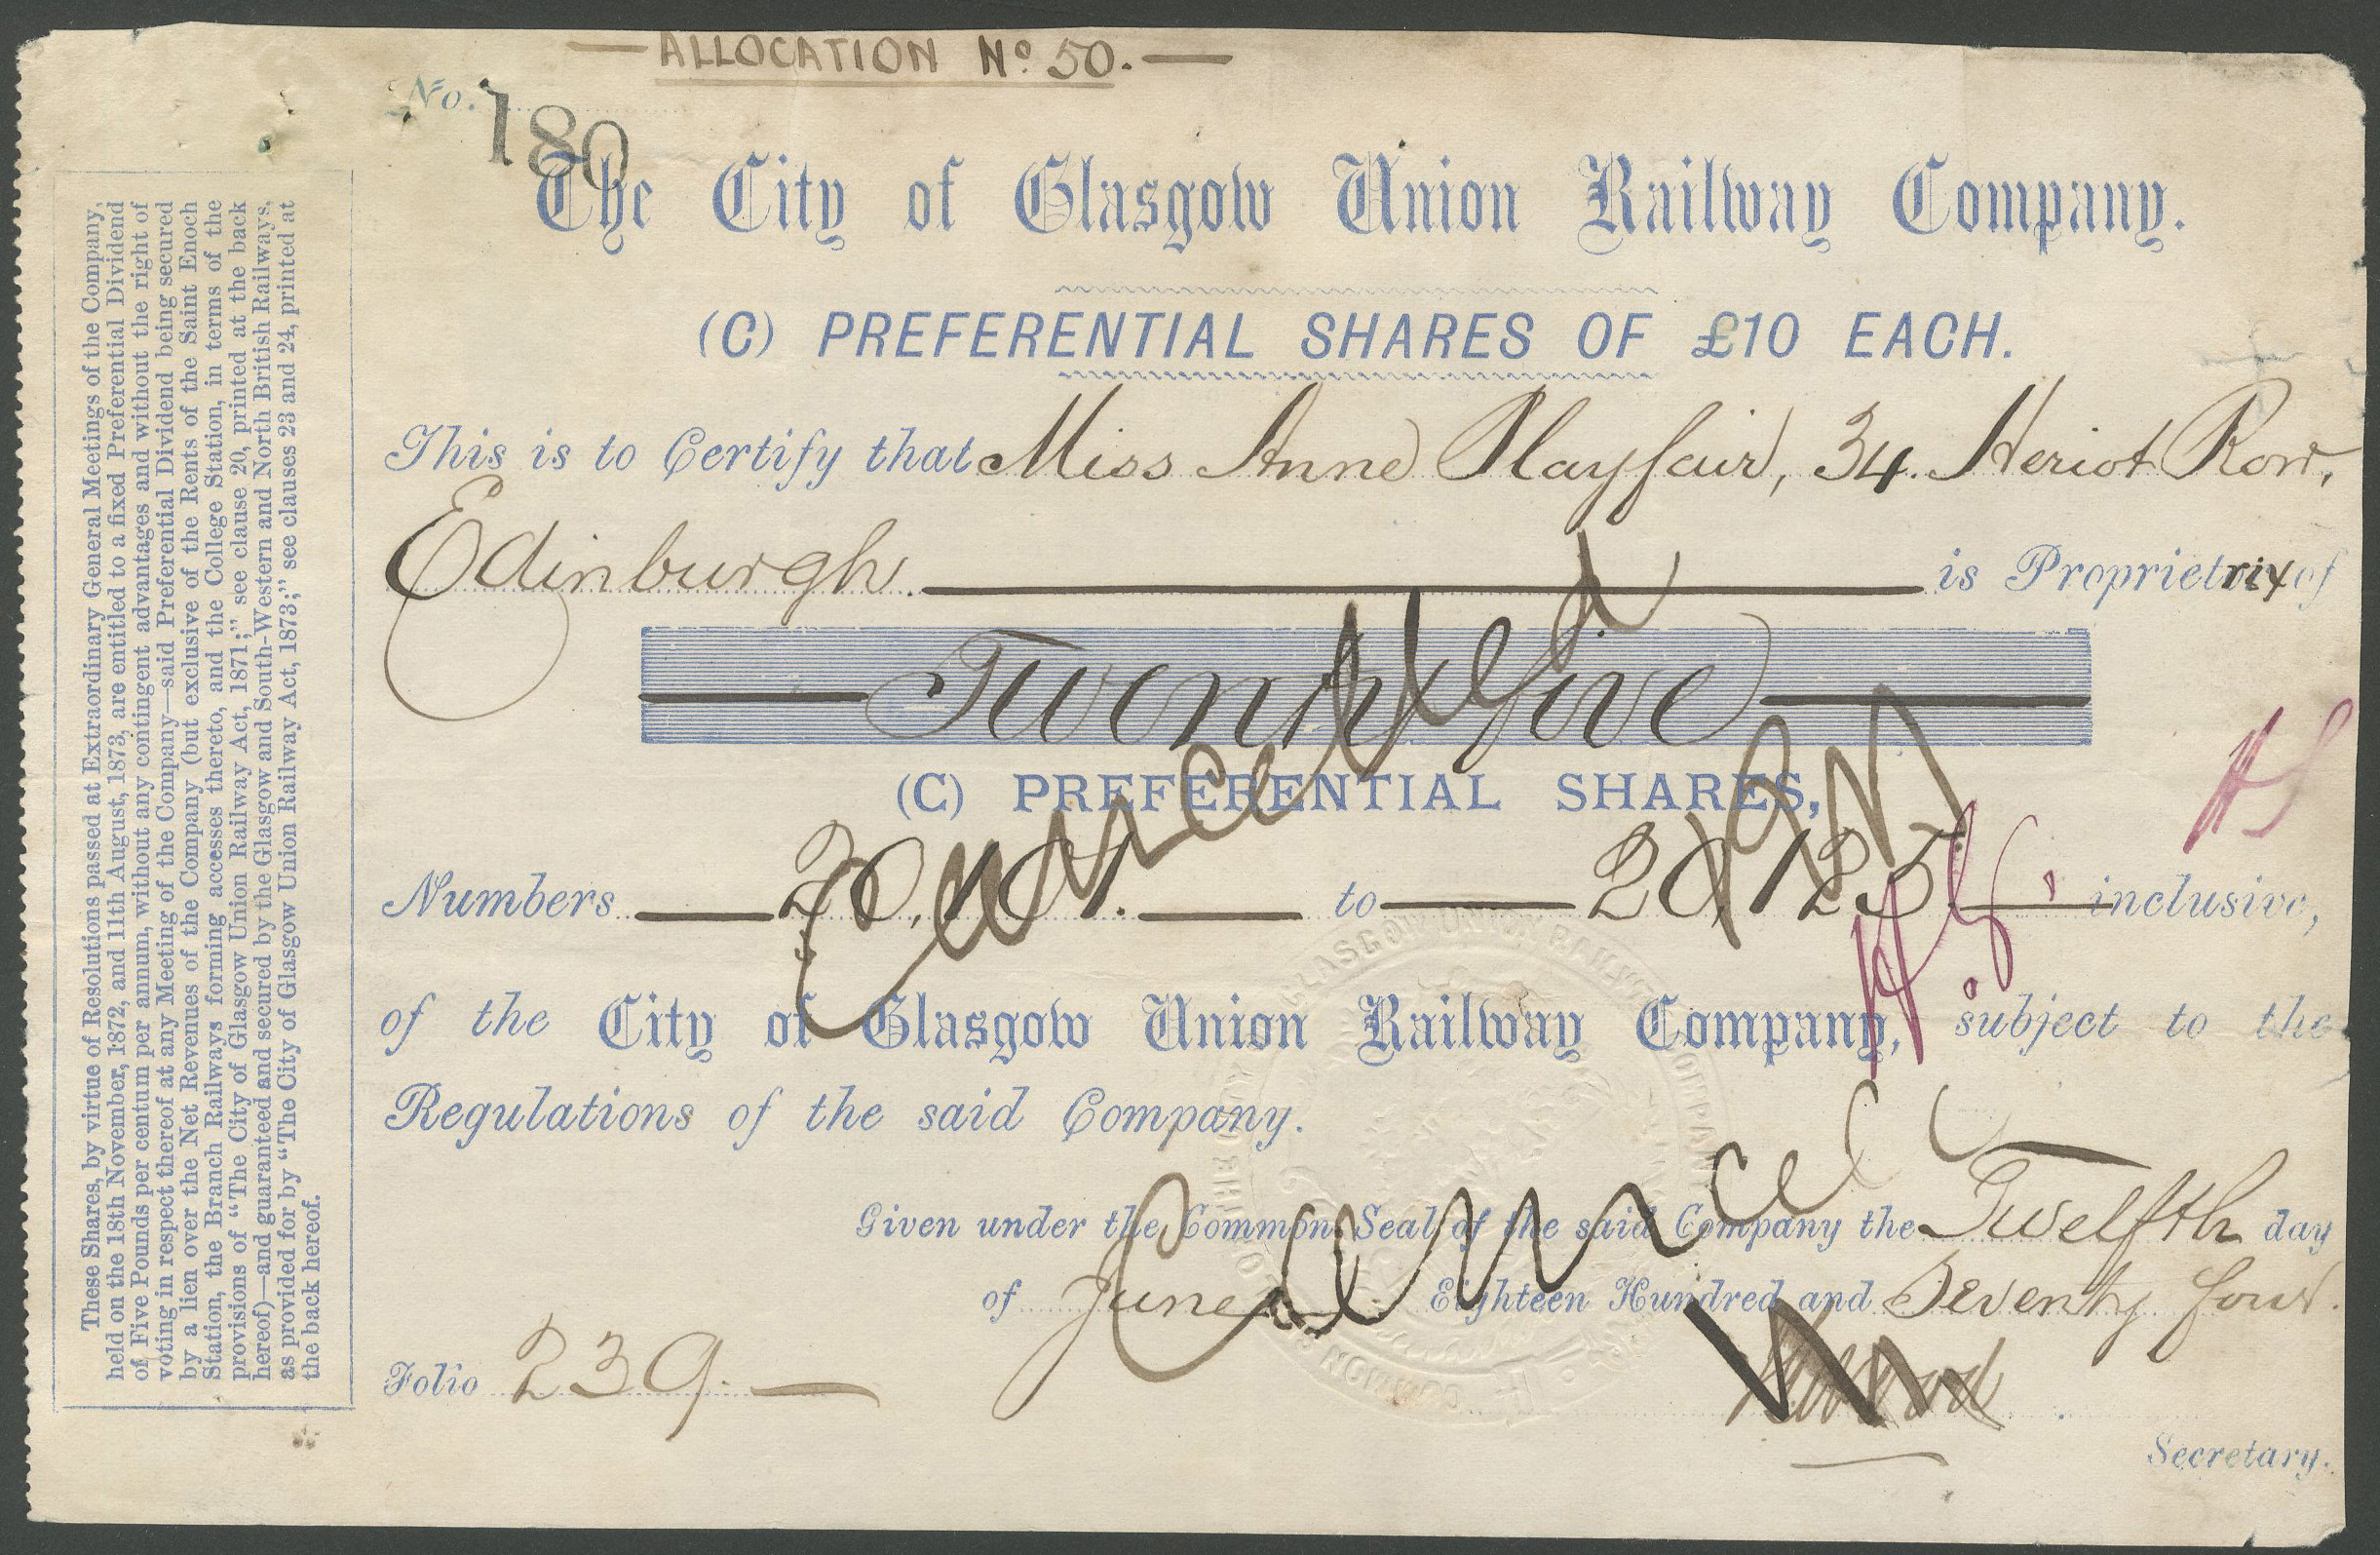 ALLOCATION No 50.
No. 180
The City of Glasgow Union Railway Company.
(C) PREFERENTIAL SHARES OF £10 EACH.
This is to Certify that Miss Anne Playfair, 34. Heriot Row,
Edinburgh. is Proprietrix of
Twenty five
(C) PREFERENTIAL SHARES,
Numbers 20,101. to 20,125. inclusive,
of the City of Glasgow Union Railway Company, subject to the
Regulations of the said Company.
Given under the Common Seal of the said Company the Twelfth day
of June Eighteen Hundred and Seventy four.
Folio 239.
Secretary.
Cancelled
Cancel
These Shares, by virtue of Resolutions passed at Extraordinary General Meetings of the Company,
held on the 18th November, 1872, and 11th August, 1873, are entitled to a fixed Preferential Dividend
of Five Pounds per centum per annum, without any contingent advantages and without the right of
voting in respect thereof at any Meeting of the Company—said Preferential Dividend being secured
by a lien over the Net Revenues of the Company (but exclusive of the Rents of the Saint Enoch
Station, the Branch Railways forming accesses thereto, and the College Station, in terms of the
provisions of "The City of Glasgow Union Railway Act, 1871;" see clause 20, printed at the back
hereof)—and guaranteed and secured by the Glasgow and South-Western and North British Railways,
as provided for by "The City of Glasgow Union Railway Act, 1873;" see clauses 23 and 24, printed at
the back hereof.